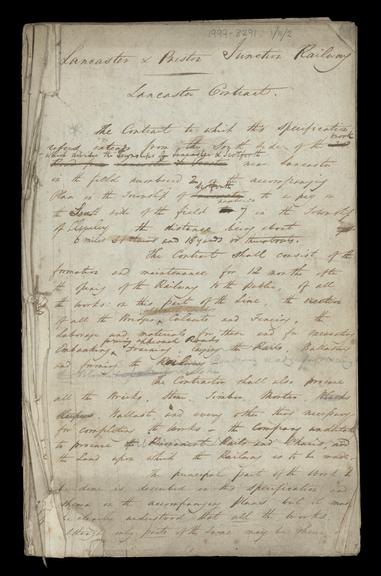 1999-8291 1/11/2
Lancaster & Preston Junction Railway
Lancaster Contract.
The Contract to which this specification
refers extends from the South side of the
which divides the Townships of Lancaster & Scotforth
near Lancaster
in the field numbered 2 on the accompanying
Plan in the Township of Scotforth to a peg in
the East side of the field 7 in the Township
of the distance being about
6 miles and 18 yards or thereabouts.
The Contract shall consist of the
formation and maintenance for 12 months after
the opening of the Railway to the public, of all
the works on this part of the Line, the erection
of all the Bridges, Culverts and Fencing, the
labourage and materials for them and for
Embanking, forming approach Roads
laying the Rails, Ballasting
and forming the
The Contractor shall also procure
all the Bricks, Stone, Timber, Mortar,
Ballast and every other thing necessary
for completing the works as the Company undertake
to procure the Permanent Rails and Chairs and
the Land upon which the Railway is to be made.
The principal part of the Work to
be done is described in this specification and
shewn in the accompanying Plans but it must
be clearly understood that all the works,
although only parts of the same may be there